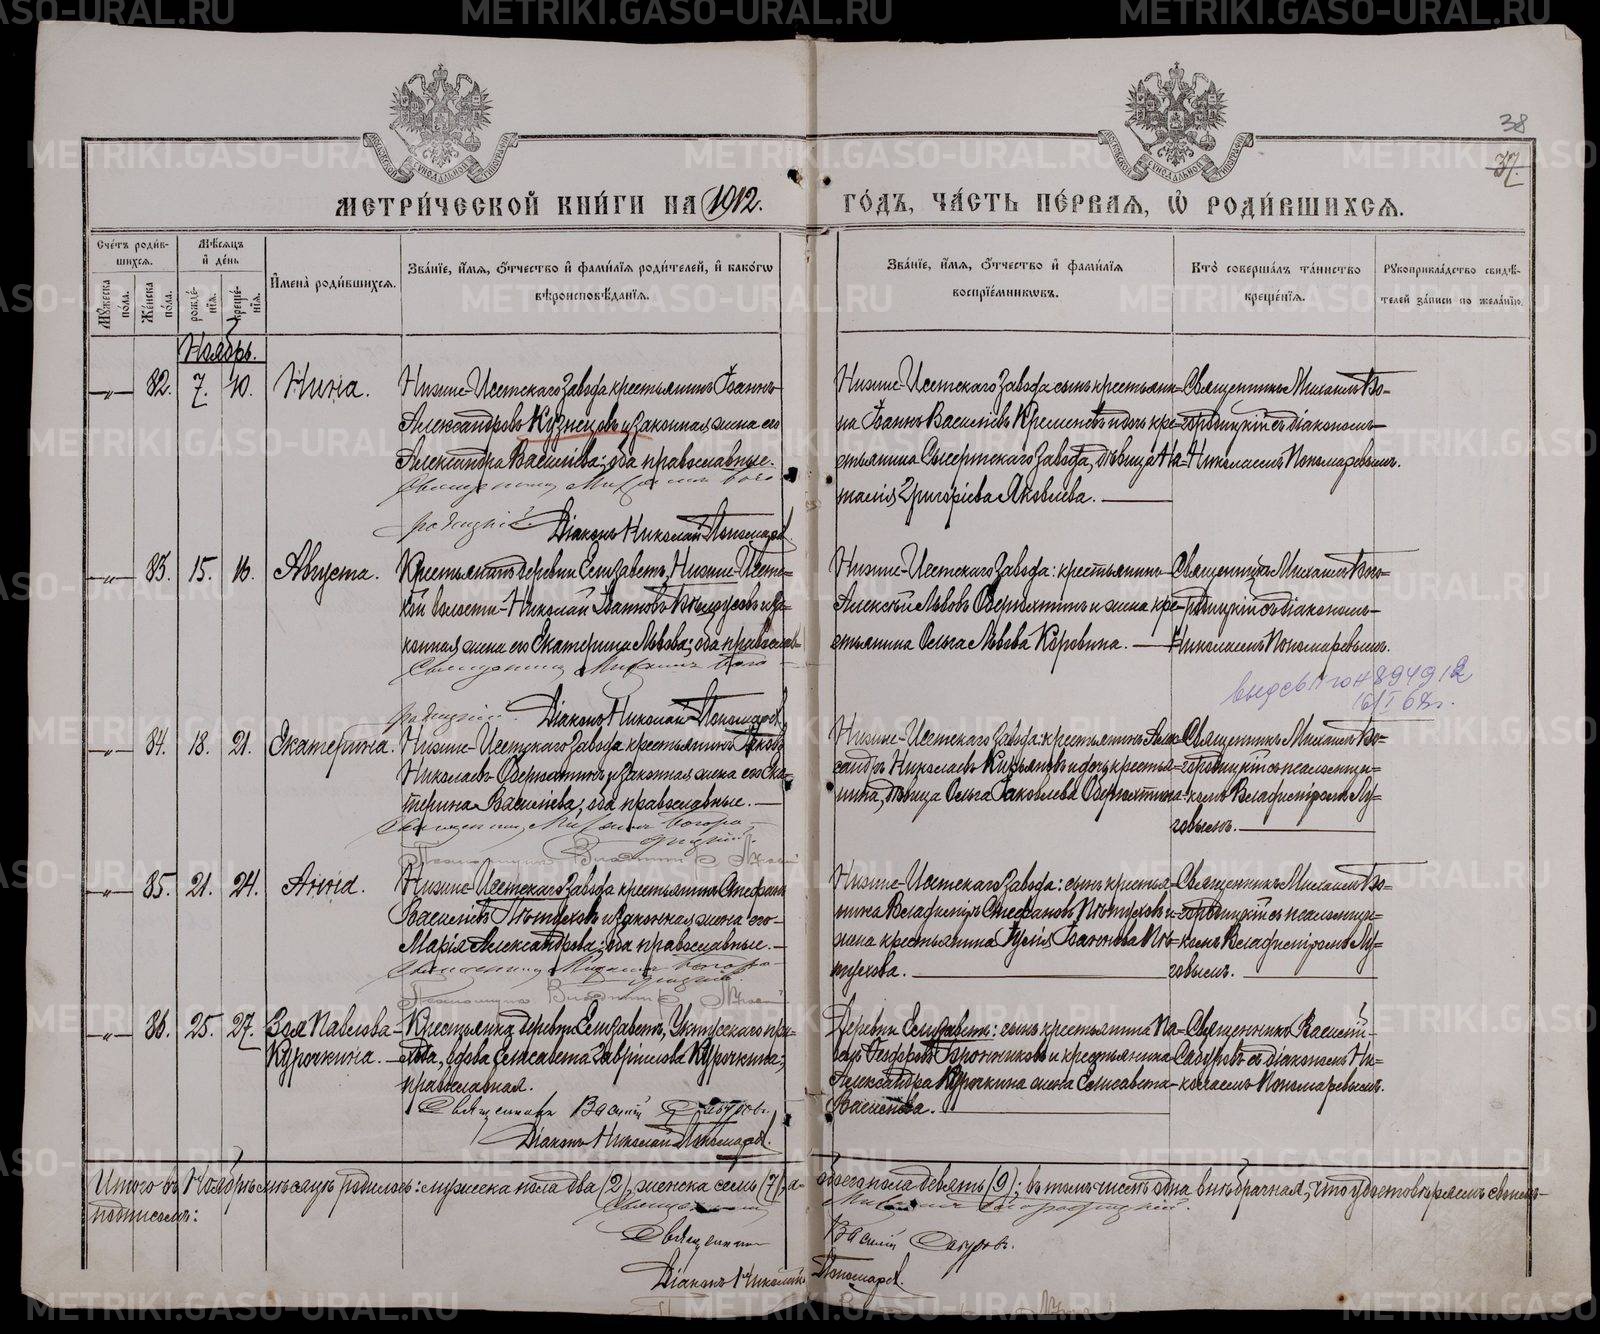 38
37.
МЕТРИ́ЧЕСКОЙ КНИ́ГИ НА 1912. ГО́ДЪ, ЧА́СТЬ ПЕ́РВАЯ, Ѡ РОДИ́ВШИХСЯ.
Сче́тъ роди́вшихся.
Мѣ́сяцъ и де́нь
Имена̀ роди́вшихся.
Зва́нїе, и́мя, о́тчество и фами́лїя роди́телей, и како́гѡ
вѣроисповѣ́данїя.
Зва́нїе, и́мя, о́тчество и фами́лїя
воспрїе́мниковъ.
Кто̀ соверша́лъ та́инство
креще́нїя.
Рꙋкоприкла́дство свидѣ́-
телей за́писи по жела́нїю.
Мꙋ́жеска по́ла.
Же́нска по́ла.
рожде́нїя.
креще́нїя.
Ноябрь.
—„— 82. 7. 10. Нина.
Нижне-Исетскаго завода крестьянинъ Іоаннъ
Александровъ Кузнецовъ и законная жена его
Александра Васильева; оба православные.
Священникъ Михаилъ Бого-
родицкій. Діаконъ Николай Пономарев
Нижне-Исетскаго завода сынъ крестьяни-
на Іоаннъ Васильевъ Кременевъ и дочь кре-
стьянина Сысертскаго завода, дѣвица На-
талія Григоріева Яковлева.
Священникъ Михаилъ Бо-
городицкій съ діакономъ
Николаемъ Пономаревымъ.
—„— 83. 15. 16. Августа.
Крестьянинъ деревни Елизаветъ, Нижне-Исет-
кой волости Николай Іоанновъ и за-
конная жена его Екатерина Львова; оба православ-
Священникъ Михаилъ Бого-
родицкій. Діаконъ Николай Пономарев
Нижне-Исетскаго завода: крестьянинъ
Алексѣй Львовъ Оберюхтинъ и жена кре-
стьянина Ольга Львова Коровина.
Священникъ Михаилъ Бого-
родицкій съ діакономъ
Николаемъ Пономаревымъ.
—„— 84. 18. 21. Екатерина.
Нижне-Исетскаго завода крестьянинъ Іаковъ
Николаевъ Оберюхтинъ и законная жена его Ека-
терина Васильева; оба православные.
Священникъ Михаилъ Богоро-
дицкій.
Нижне-Исетскаго завода: крестьянинъ Алек-
сандръ Николаевъ и дочь крестья-
нина, дѣвица Ольга Іаковлева Оберюхтина.
Священникъ Михаилъ Бо-
городицкій съ псаломщи-
комъ Владиміромъ Лу-
говымъ.
—„— 85. 21. 24. Анна.
Нижне-Исетскаго завода крестьянинъ Стефанъ
Васильевъ Пѣтуховъ и законная жена его
Марія Александрова; оба православные.
Священникъ Михаилъ Богоро-
дицкій
Нижне-Исетскаго завода: сынъ крестья-
нина Владиміръ Стефановъ Пѣтуховъ и
жена крестьянина Іулія Іоаннова Пѣ-
тухова.
Священникъ Михаилъ Бо-
городицкій съ псаломщи-
комъ Владиміромъ Лу-
говымъ.
—„— 86. 25. 27. Зоя Павлова
Курочкина.
Крестьянка деревни Елизаветъ, Уктусскаго при-
хода, вдова Елисавета Гавріилова Курочкина;
православная.
Священникъ Василій Сабуровъ.
Діаконъ Николай Пономарев.
Деревни Елизаветъ: сынъ крестьянина Па-
велъ Бронниковъ и крестьянина
Александра Курочкина жена Елисавета
Васильева.
Священникъ Василій
Сабуровъ съ діакономъ Ни-
колаемъ Пономаревымъ.
Итого въ Ноябрѣ мѣсяцѣ родилось: мужеска пола два (2), женска семь (7), а обоего пола девять (9); въ томъ числѣ одна внѣбрачная, что удостовѣряемъ своимъ
подписомъ:
Священникъ Михаилъ Богородицкій.
Священникъ Василій Сабуровъ.
Діаконъ Николай Пономарев.
METRIKI.GASO-URAL.RU